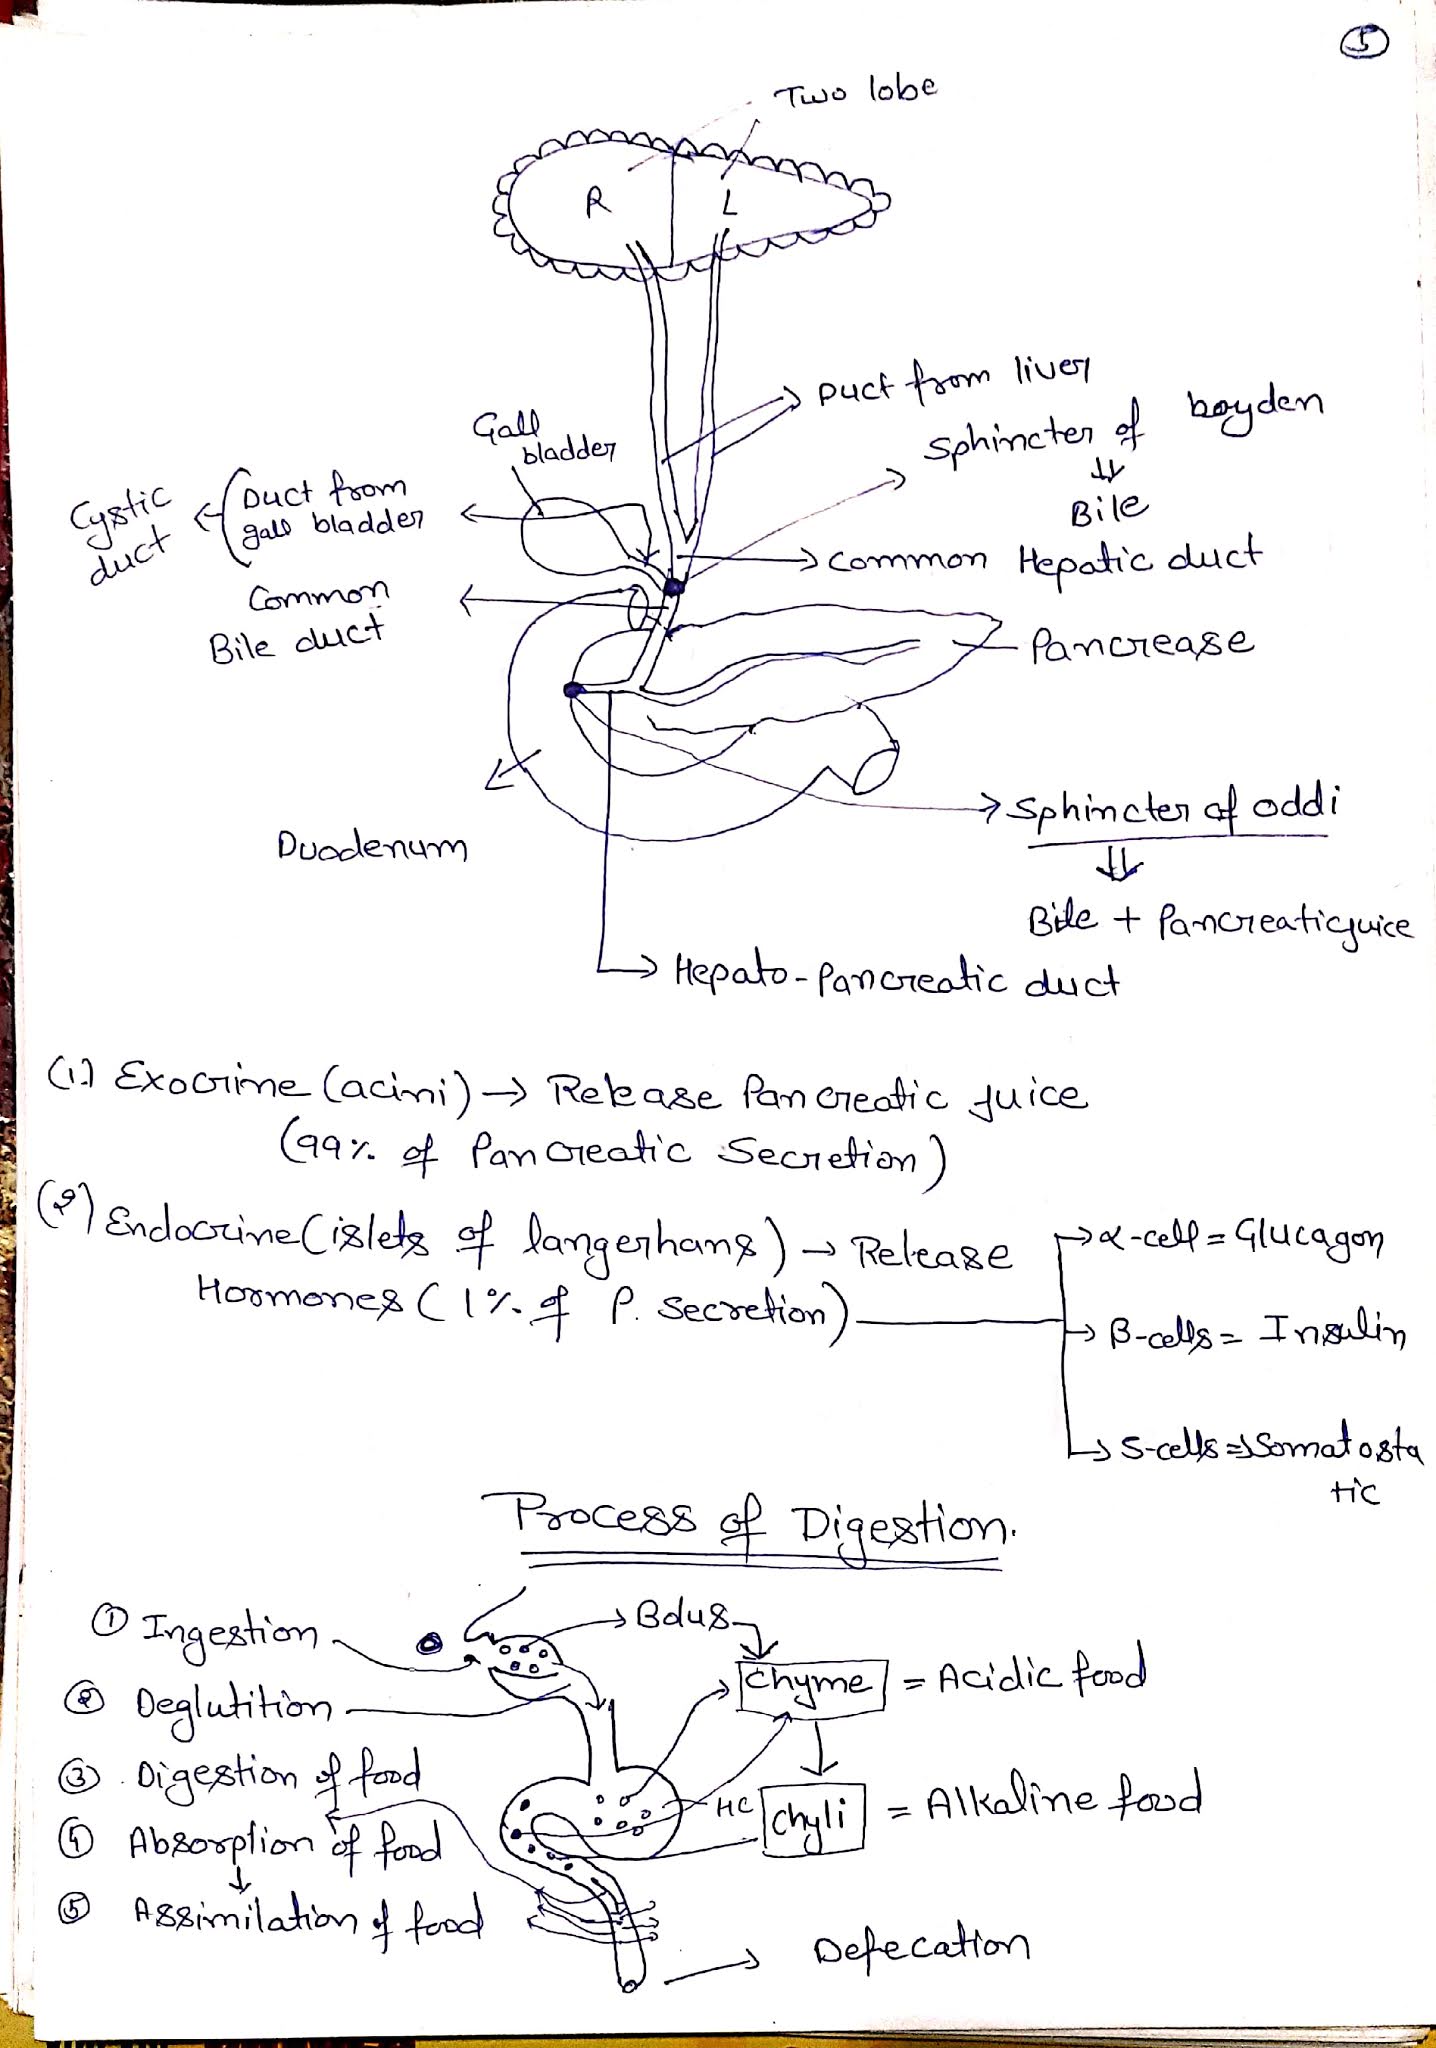 5
Two lobe
R
L
Duct from liver
Sphincter of boyden
⇓
Bile
Gall
bladder
Cystic
duct
Duct from
gall bladder
Common Hepatic duct
Common
Bile duct
Pancrease
Duodenum
Sphincter of oddi
⇓
Bile + Pancreaticjuice
Hepato-Pancreatic duct
(1.) Exocrine (acini) → Release Pancreatic Juice
(99% of Pancreatic Secretion)
(2) Endocrine (islets of langerhans) → Release
Hormones (1% of P. secretion)
→ α-cell = Glucagon
→ β-cells = Insulin
→ S-cells ⇒ Somatosta
tic
Process of Digestion.
① Ingestion
→ Bolus
Chyme = Acidic food
② Deglutition
③ Digestion of food
HC
Chyli = Alkaline food
④ Absorption of food
↓
⑤ Assimilation of food
→ Defecation